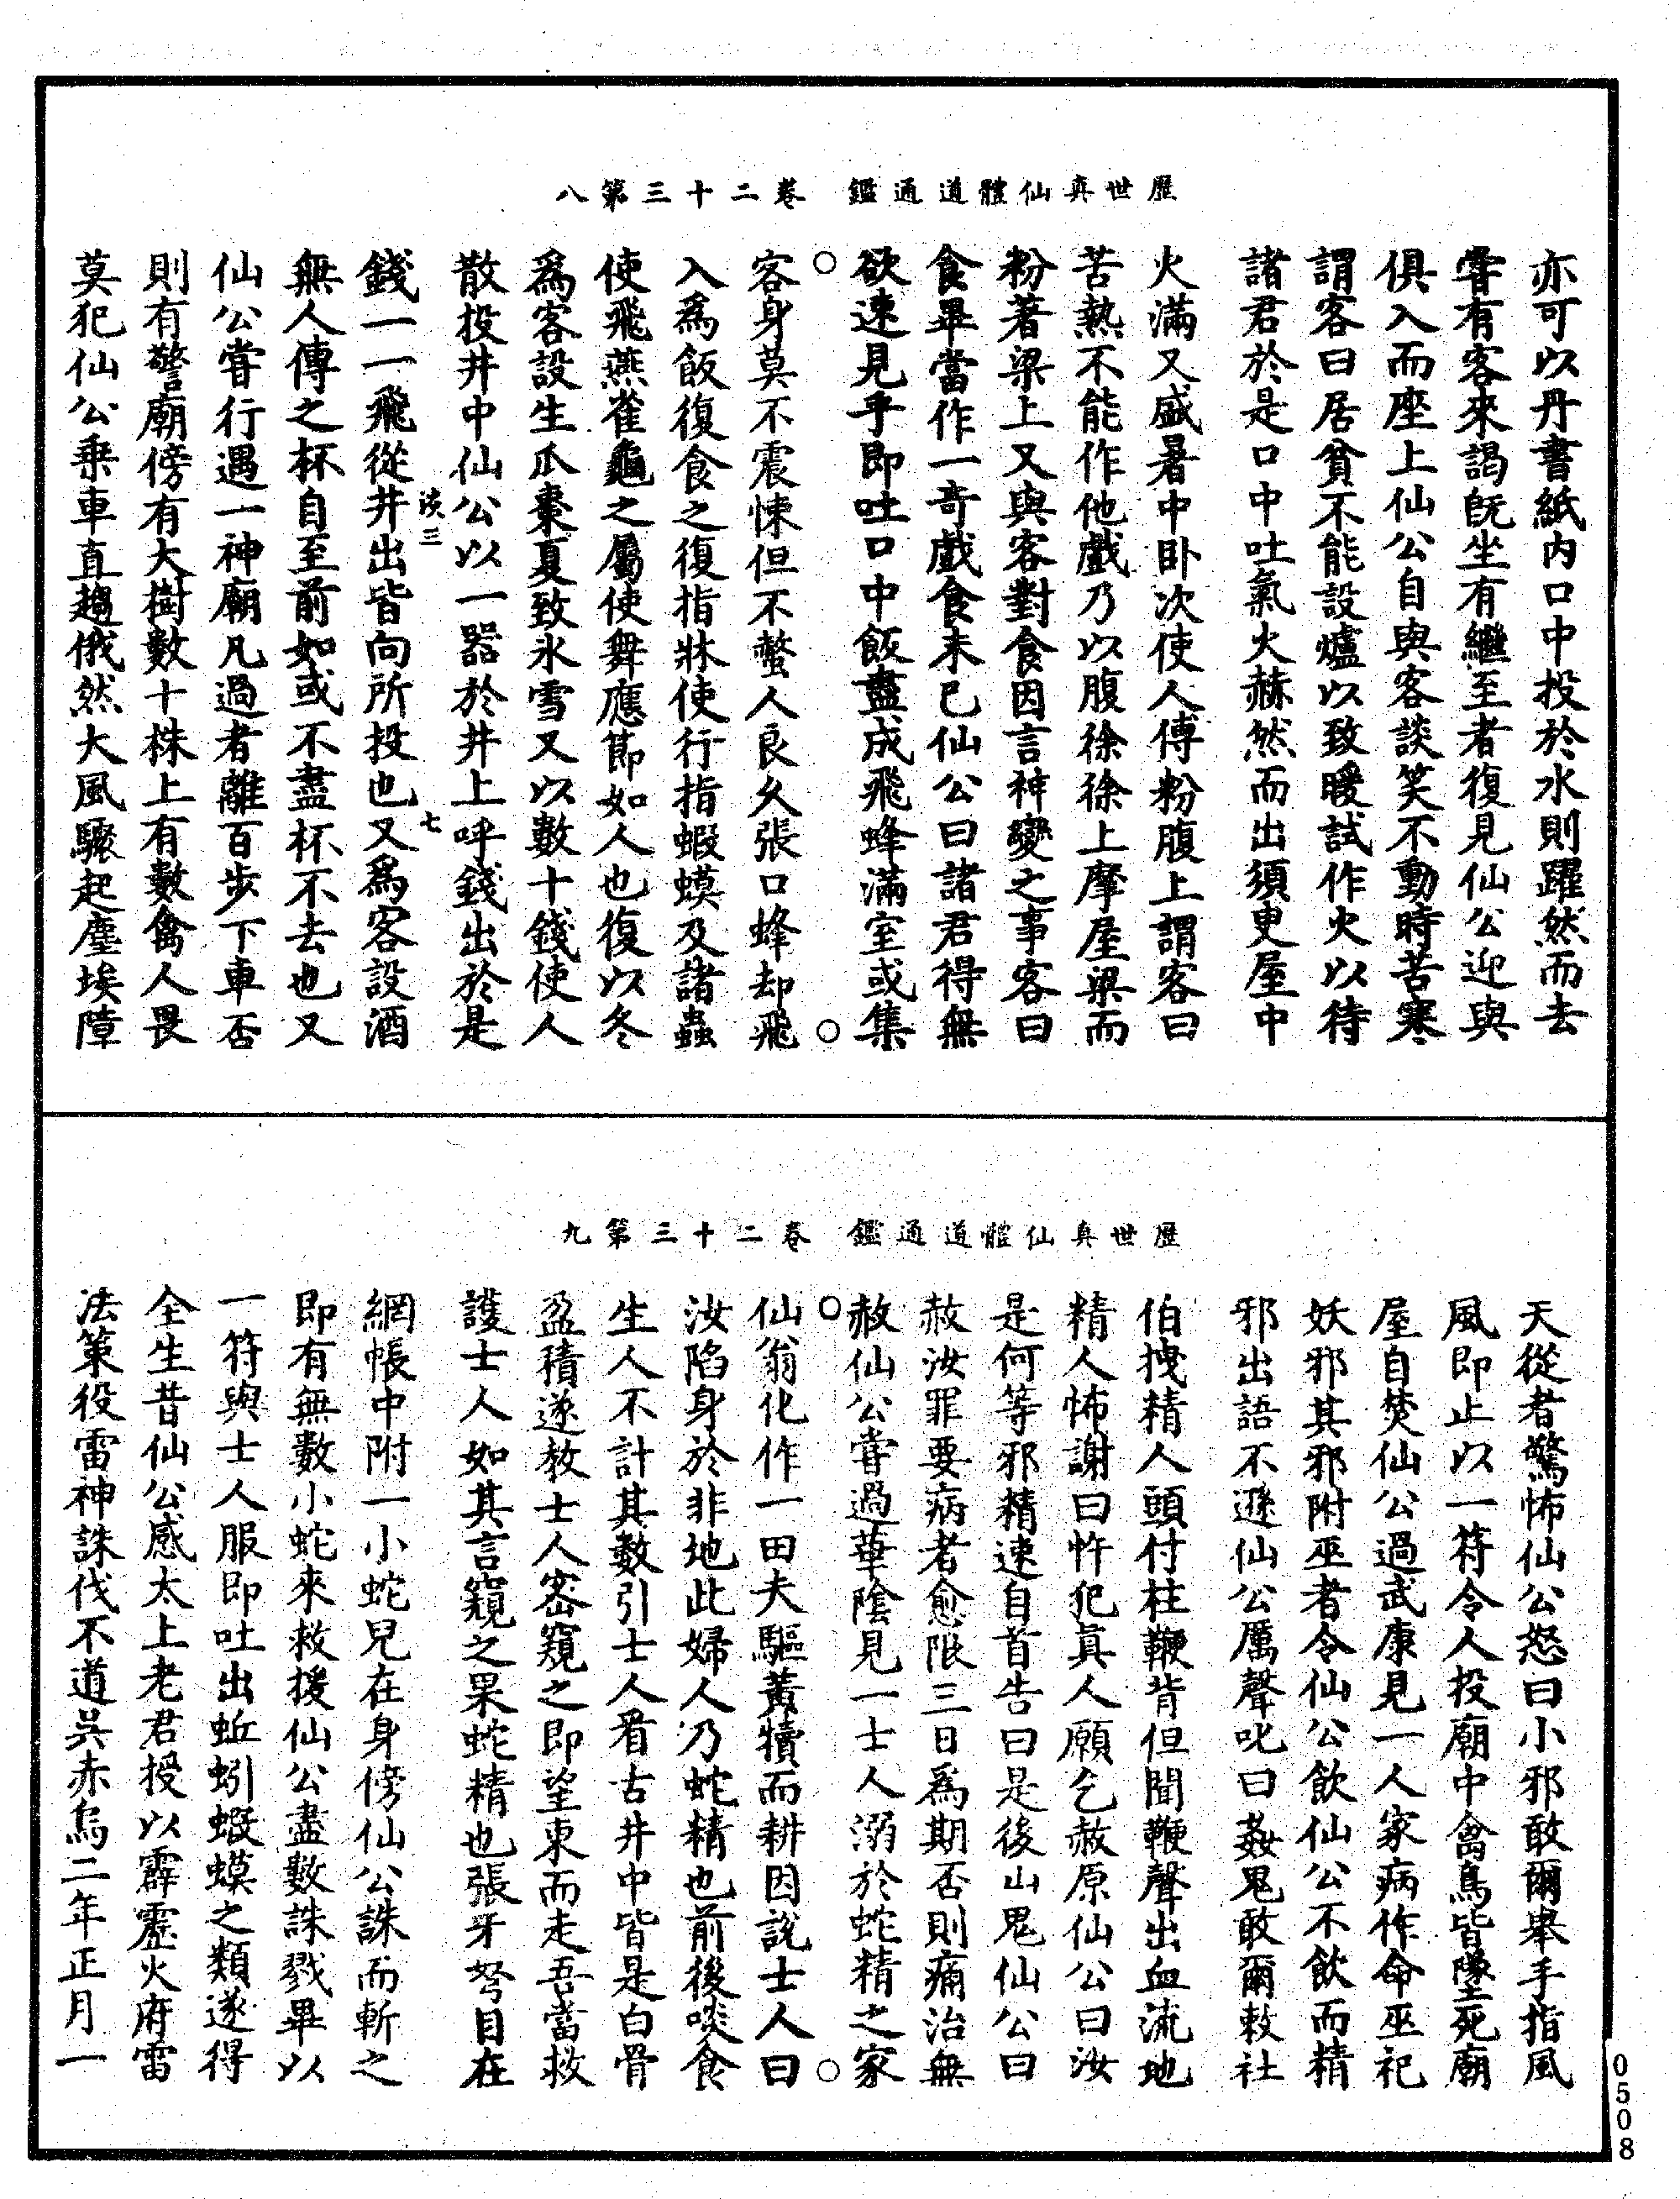 歷世真仙體道通鑑　卷二十三第八
亦可以丹書紙內口中投於水則躍然而去
嘗有客來謁旣坐有繼至者復見仙公迎與
俱入而座上仙公自與客談笑不動時苦寒
謂客曰居貧不能設爐以致暖試作火以待
諸君於是口中吐氣火赫然而出須更屋中
火滿又盛暑中卧次使人傅粉腹上謂客曰
苦熱不能作他戲乃以腹徐徐上摩屋梁而
粉著梁上又與客對食因言神變之事客曰
食畢當作一奇戲食未已仙公曰諸君得無
欲速見乎即吐口中飯盡成飛蜂滿室或集
客身莫不震悚但不螫人良久張口蜂却飛
入爲飯復食之復指牀使行指蝦蟆及諸蟲
使飛燕雀龜之屬使舞應節如人也復以冬
爲客設生瓜棗夏致氷雪又以數十錢使人
散投井中仙公以一器於井上呼錢出於是
談三　七
錢一一飛從井出皆向所投也又爲客設酒
無人傳之杯自至前如或不盡杯不去也又
仙公嘗行遇一神廟凡過者離百步下車否
則有警廟傍有大樹數十株上有數禽人畏
莫犯仙公乗車直趨俄然大風驟起塵埃障
歷世真仙體道通鑑　卷二十三第九
天從者驚怖仙公怒曰小邪敢爾舉手指風
風即止以一符令人投廟中禽鳥皆墜死廟
屋自焚仙公過武康見一人家病作命巫祀
妖邪其邪附巫者令仙公飲仙公不飲而精
邪出語不遜仙公厲聲叱曰姦鬼敢爾敕社
伯拽精人頭付柱鞭背但聞鞭聲出血流地
精人怖謝曰忤犯真人願乞赦原仙公曰汝
是何等邪精速自首告曰是後山鬼仙公曰
赦汝罪要病者愈限三日爲期否則痛治無
赦仙公嘗過華陰見一士人溺於蛇精之家
仙翁化作一田夫驅黃犢而耕因說士人曰
汝陷身於非地此婦人乃蛇精也前後啖食
生人不計其數引士人看古井中皆是白骨
盈積遂救士人密窺之即望東而走吾當救
護士人如其言窺之果蛇精也張牙弩目在
網帳中附一小蛇兒在身傍仙公誅而斬之
即有無數小蛇來救援仙公盡數誅戮畢以
一符與士人服即吐出蚯蚓蝦蟆之類遂得
全生昔仙公感太上老君授以霹靂火府雷
法策役雷神誅伐不道吳赤烏二年正月一
0508